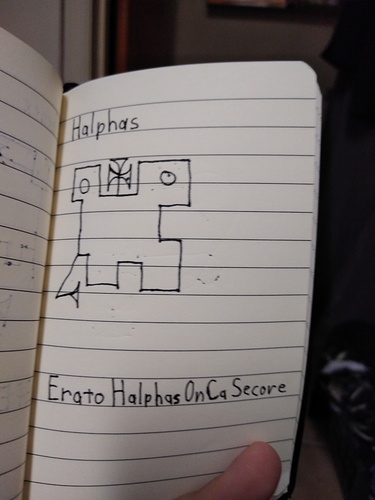 Halphas
Erato Halphas On Ca Secore